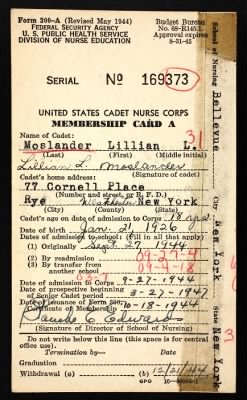 Form 300-A (Revised May 1944)
FEDERAL SECURITY AGENCY
U. S. PUBLIC HEALTH SERVICE
DIVISION OF NURSE EDUCATION
Budget Bureau
No. 68-R145.1
Approval expires
8-31-45
SERIAL No 169373
UNITED STATES CADET NURSE CORPS
MEMBERSHIP CARD A
Name of Cadet:
31
Moslander Lillian L.
(Last) (First) (Middle initial)
Lillian L. Moslander
(Signature of cadet)
Cadet's home address:
77 Cornell Place
(Number and street, or R. F. D.)
Rye Westchester New York
(City) (County) (State)
Cadet's age on date of admission to Corps 18 yrs.
Date of birth Jan. 21, 1926
Dates of admission to school: (Fill in all that apply)
(1) Originally Sept. 27 1944
(2) By readmission 09-27-4
(3) By transfer from another school 09-9-18
03-7
Date of admission to Corps 9-27-1944
Date of prospective beginning of Senior Cadet period 3-27-1947
Date of issuance of Form 300, Certificate of Membership 10-18-1944
Claude C Edwards
(Signature of Director of School of Nursing)
Do not write below this line (this space is for central office use).
Termination by— Date
Graduation
Withdrawal (a) (b) 12/21/44
GPO
School of Nursing Bellevue
City New York
State New York
3